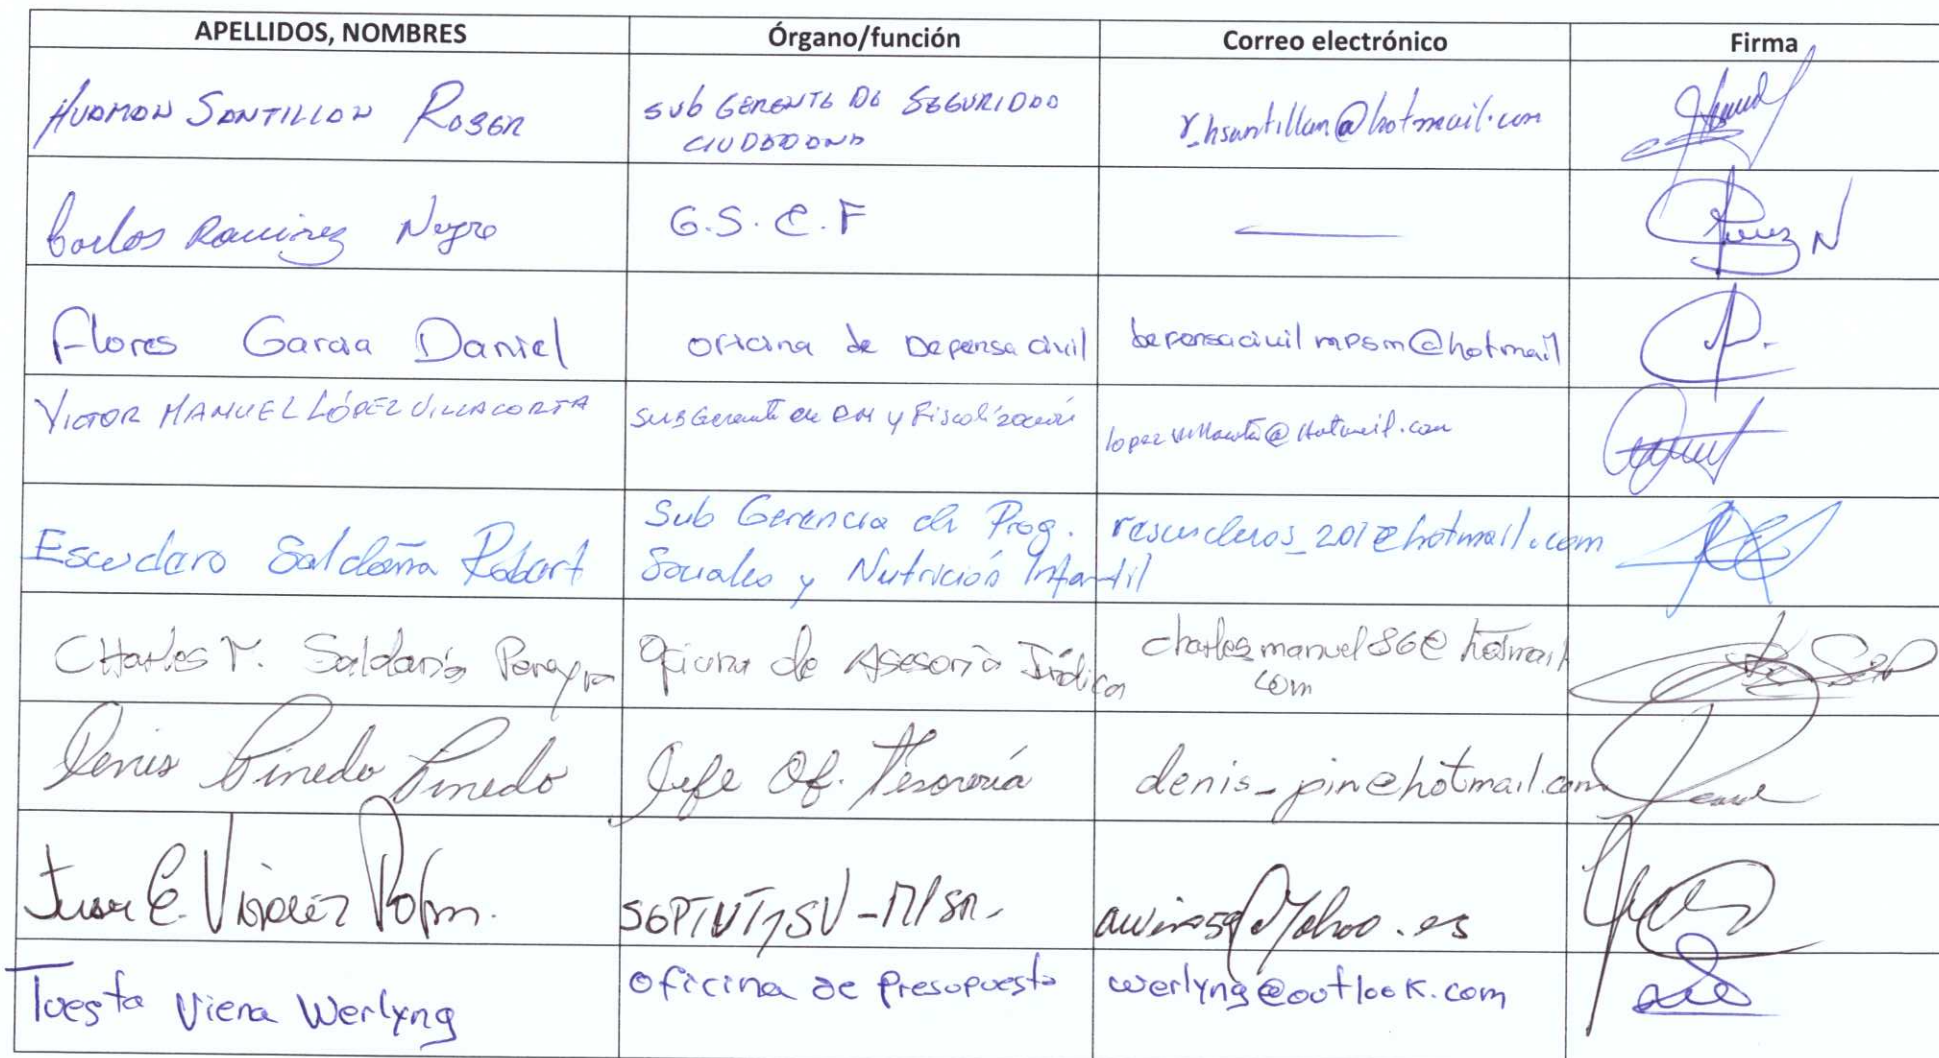 APELLIDOS, NOMBRES Órgano/función Correo electrónico Firma
HUAMAN SANTILLAN ROGER SUB GERENTE DE SEGURIDAD r_hsantillan@hotmail.com
CIUDADANA
Carlos Ramirez Negro G.S.C.F
Flores Garcia Daniel Oficina de Defensa Civil defensacivilmpsm@hotmail
VICTOR MANUEL LÓPEZ VILLACORTA SubGerente de y Fiscalización lopezvillacorta@Hotmail.com
Escudero Saldaña Robert Sub Gerencia de Prog. rescuderos_201@hotmail.com
Sociales y Nutrición Infantil
CHarles M. Saldaña Pereyra Oficina de Asesoría Jurídica charlesmanuel86@hotmail
com
Denis Pinedo Pinedo Jefe Of. Tesorería denis_pin@hotmail.com
Juan C.
Tuesta Viena Werlyng Oficina de Presupuesto werlyng@outlook.com